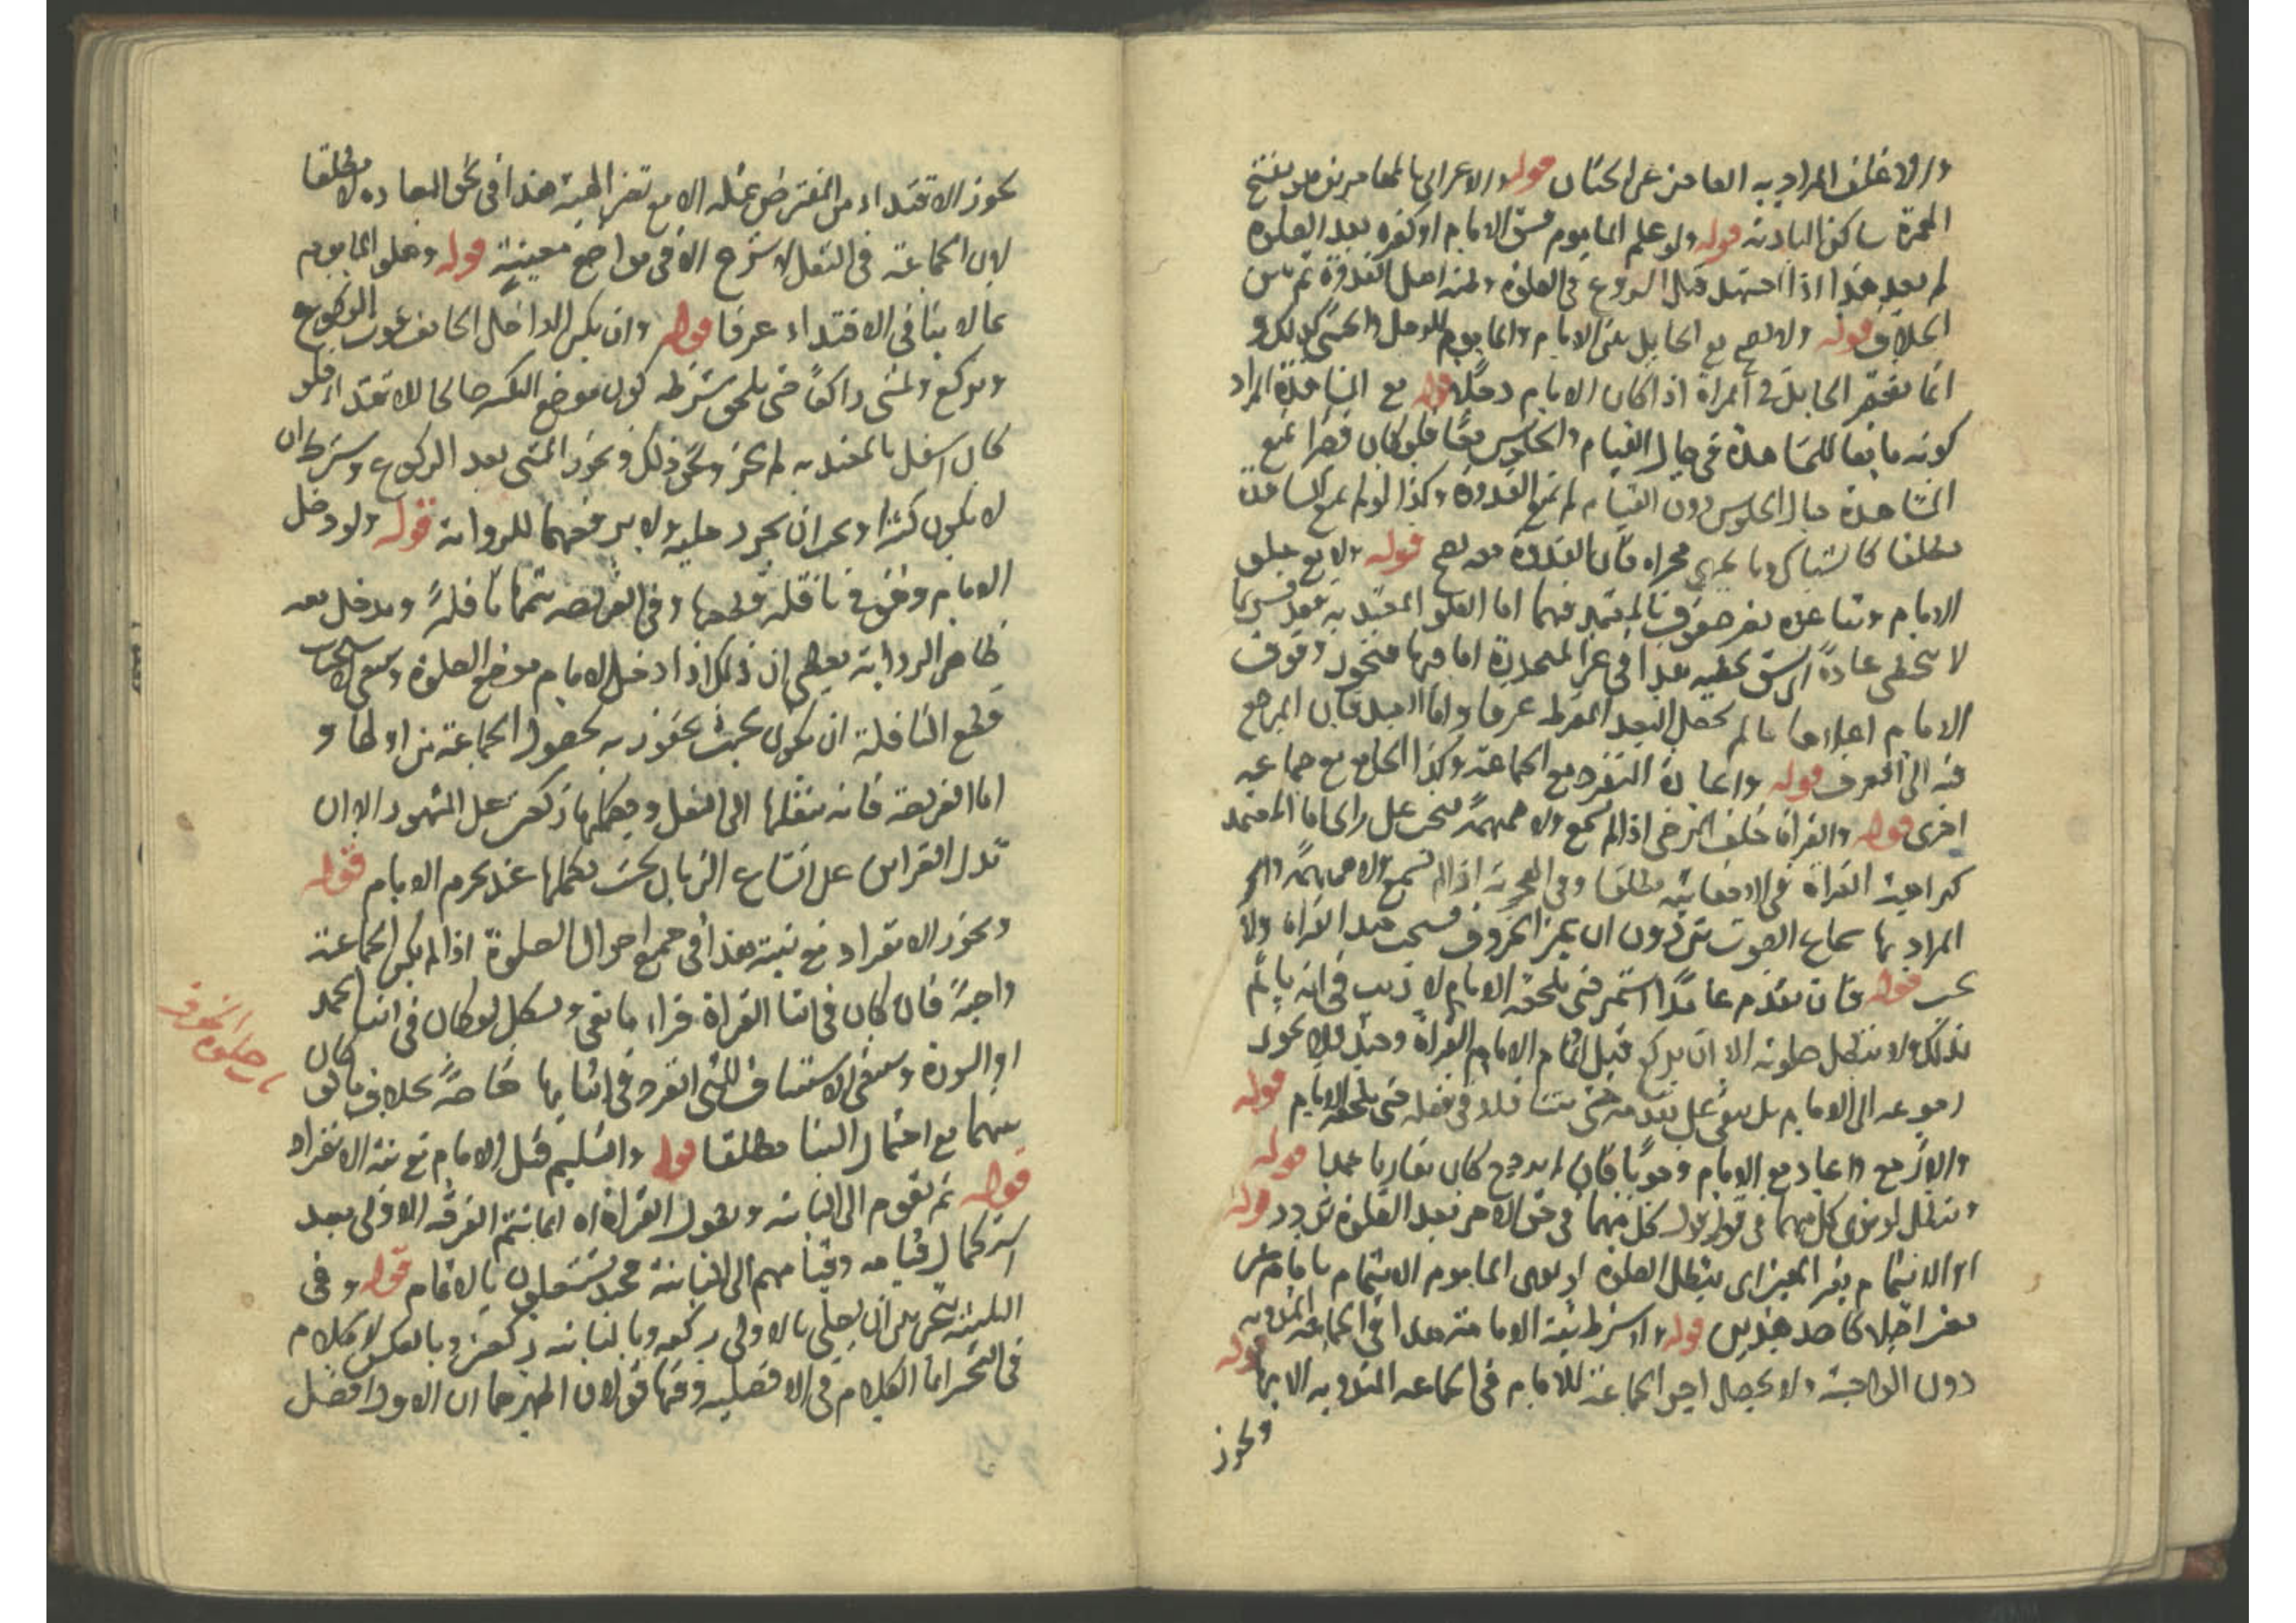 والاغلف المراد به العاجز عن الختان قوله والاعرابي بالمهاجرين هو بفتح
الهمزة ساكن البادية قوله ولو علم الماموم فسق الامام او كفره بعد الصلوة
لم يعد هذا اذا اجتهد قبل الشروع في الصلوة
الخلاف قوله ولا تصح مع الحايل بين الامام والماموم للرجل والخنثى كذلك و
انما يغتفر الحايل في المراة اذا كان الامام رجلا قوله مع المشاهدة المراد
كونه مانعا للمشاهدة في حال القيام والجلوس معا فلو كان قصيرا يمنع
المشاهدة حال الجلوس دون القيام لم يمنع القدوة وكذا لو لم يمنع المشاهدة
مطلقا كالشباك وما يجري مجراه فان القدوة معه تصح قوله ولا مع علو
الامام وتباعده بغير صفوف بالمعتد فيهما اما العلو المعتد به فقدر بما
لا يتخطى عادة هذا في غير المنحدرة اما فيها فيجوز وقوف
الامام اعلاها ما لم يحصل البعد المفرط عرفا واما البعد فان المرجع
فيه الى العرف قوله واعادة المنفرد مع الجماعة وكذا الجامع مع جماعة
اخرى قوله والقراة خلف المرضي اذا لم تسمع ولا همهمة فتجب على راي اما المعتمد
كراهية القراة في الاخفاتية مطلقا وفي الجهرية اذا لم تسمع ولا همهمة
المراد بها سماع الصوت من دون ان يميز الحروف فيستحب حينئذ القراة ولا
تجب قوله فان تقدم عامدا استمر حتى يلحقه الامام لا ريب في انه ياثم
بذلك ولا تبطل صلوته الا ان يركع قبل اتمام الامام القراة وحينئذ فلا يجوز
رجوعه الى الامام بل يبقى على تقدمه حتى يتثاقل في فعله حتى يلحقه الامام قوله
والا رجع واعاد مع الامام وجوبا فان لم يرجع كان مقاربا عمدا قوله
وتبطل لو نوى كل منهما في قبول قول كل منهما في حق الاخر بعد الصلوة تردد قوله
او الايتمام بغير المعين اي تبطل الصلوة لو نوى الماموم الايتمام بامام غير
معين اجمالا كاحد هذين قوله ولا يشترط نية الامامة هذا في الجماعة المندوبة
دون الواجبة ولا يحصل اجر الجماعة للامام في الجماعة المندوبة الا بها قوله
ويجوز
يجوز الاقتداء من المفترض بمثله الا مع تغير الهيئة هذا في غير المعادة مطلقا
لان الجماعة في النفل لا تشرع الا في مواضع معينة قوله وعلو الماموم
بما لا ينافي الاقتداء عرفا قوله وان يكبر الداخل الخائف فوت الركوع
ويركع ويمشي راكعا حتى يلحق شرطه كون موضع التكبير صالحا للاقتداء فلو
كان اسفل بالمعتد به لم يجز ونحو ذلك ويجوز المشي بعد الركوع وشرط ان
لا يكون كثيرا ويجر ان يجر رجليه ولا يرفعهما للرواية قوله ولو دخل
الامام وهو في نافلة قطعها وفي الفريضة يتمها نافلة ويدخل معه
ظاهر الرواية يعطي ان ذلك اذا دخل الامام موضع الصلوة وينبغي لاستحباب
قطع النافلة ان يكون بحيث يفوز به بحصول الجماعة من اولها و
اما الفريضة فانه ينقلها الى النفل ويكملها ركعتين على المشهور الا ان
تدل القراين على اتساع الزمان بحيث يكملها عند تحرم الامام قوله
ويجوز الانفراد مع نيته هذا في جميع احوال الصلوة اذا لم تكن الجماعة
واجبة فان كان في اثنا القراة قرا ما بقي ويشكل لو كان في اثنا الحمد
او السورة وينبغي الاستيناف للتي انفرد في اثنائها خاصة بخلاف ما لو كان
بينهما مع احتمال البنا مطلقا قوله والتسليم قبل الامام مع نية الانفراد
قوله ثم يقوم الى الثانية ويطول القراة انما تتم الفرقة الاولى بعد
استكمال قيامه وقيامهم الى الثانية فحينئذ يستقلون بالاتمام قوله وفي
الثلاثية يتخير بين ان يصلي بالاولى ركعة وبالثانية ركعتين وبالعكس لا كلام
في التخير انما الكلام في الافضلية وفيها قولان اظهرهما ان الاول افضل
صلوة الخوف